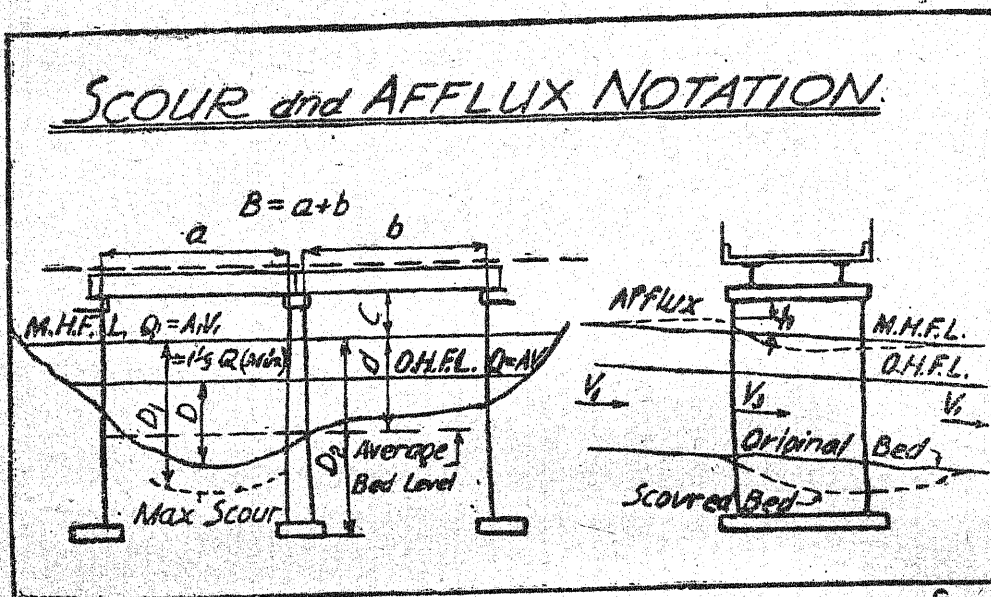 SCOUR and AFFLUX NOTATION.
B = a+b
a
b
C
M.H.F.L. Q₁=A₁V₁
d
O.H.F.L. Q=AV
D₁
D
D₂
Average
Bed Level
Max Scour
AFFLUX
h
M.H.F.L.
O.H.F.L.
V₁
V₁
Original Bed
Scoured Bed